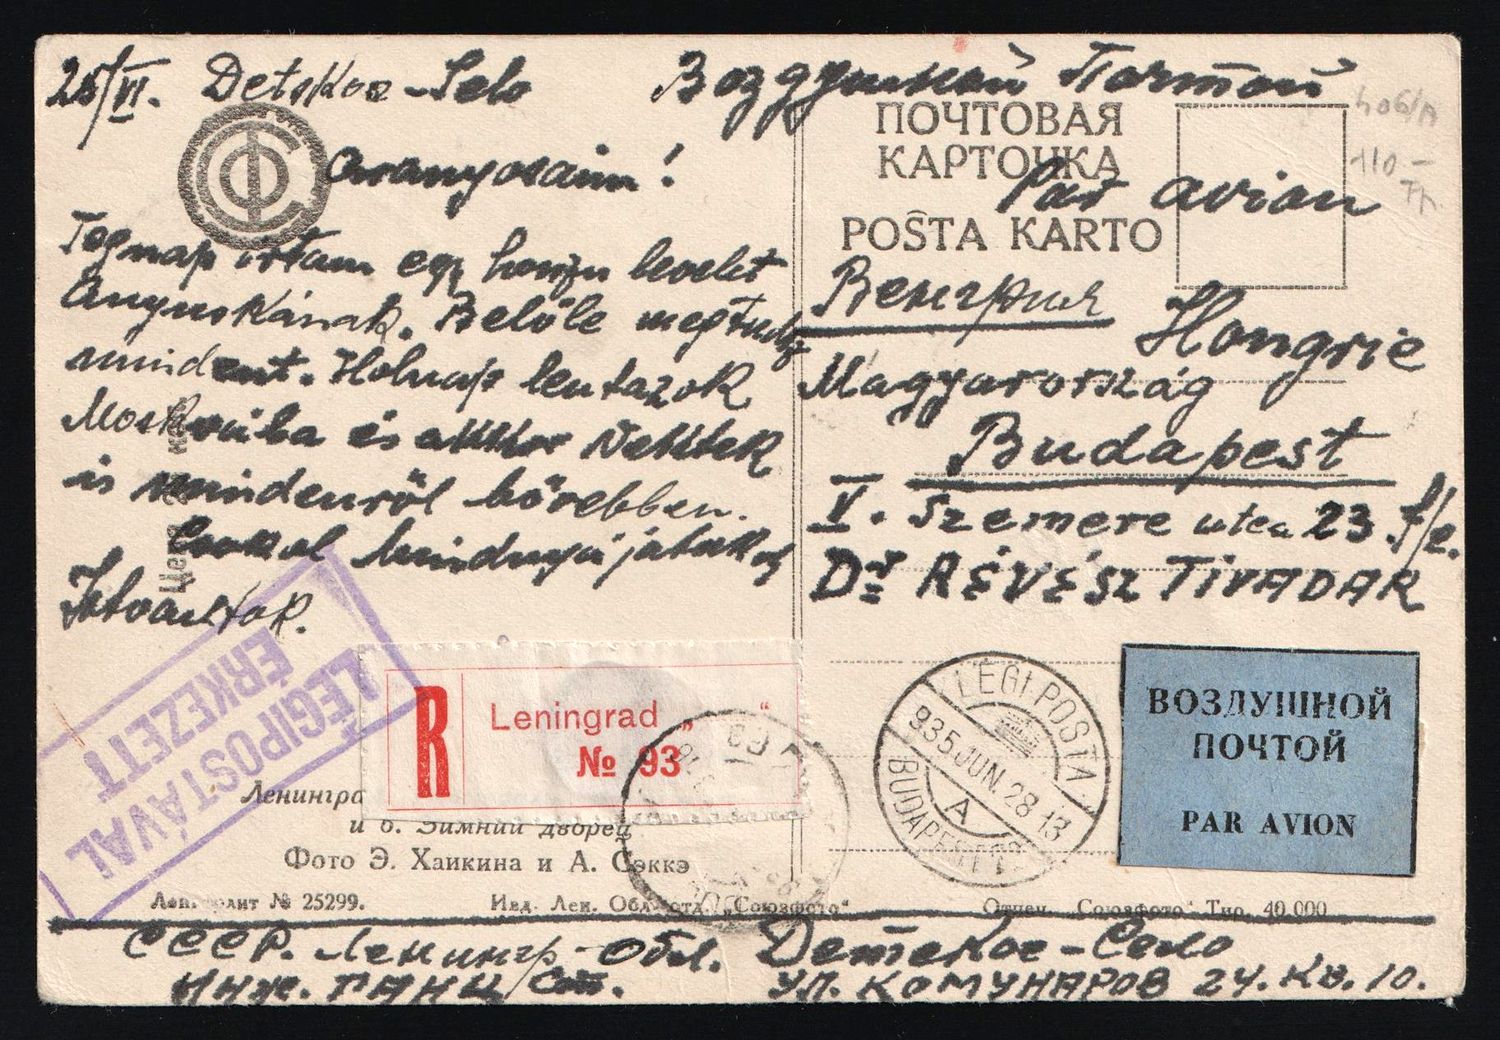 25/VI. Detskoe-Selo
Aranyosaim!
Tegnap irtam egy hosszu levelet
Anyuskának. Belőle megtudtok
mindent. Holnap leutazok
Moszkvába és akkor Nektek
is mindenről bövebben.
Csokol mindnyájatokat
Istvantok.
Воздушной Почтой
406/A
110.-
ПОЧТОВАЯ
КАРТОЧКА
Par avion
POŜTA KARTO
Венгрия
Hongrie
Magyarország
Budapest
V. Szemere utca 23. f/2.
Dr RÉVÉSZ TIVADAR
LÉGIPOSTÁVAL
ÉRKEZETT
R
Leningrad „ “
№ 93
LÉGIPOSTA
935 JUN. 28. 13
A
BUDAPEST
ВОЗДУШНОЙ
ПОЧТОЙ
PAR AVION
Ленингра
и б. Зимний дворец
Фото Э. Хаикина и А. Сэккэ
Ленгорлит № 25299.
Изд. Лен. Обл. отд. „Союзфото“
Отпеч. „Союзфото“ Тир. 40.000
СССР. Ленингр-Обл. Детское-Село
инж. ГАНЦ УЛ. КОМУНАРОВ 24. кв. 10.